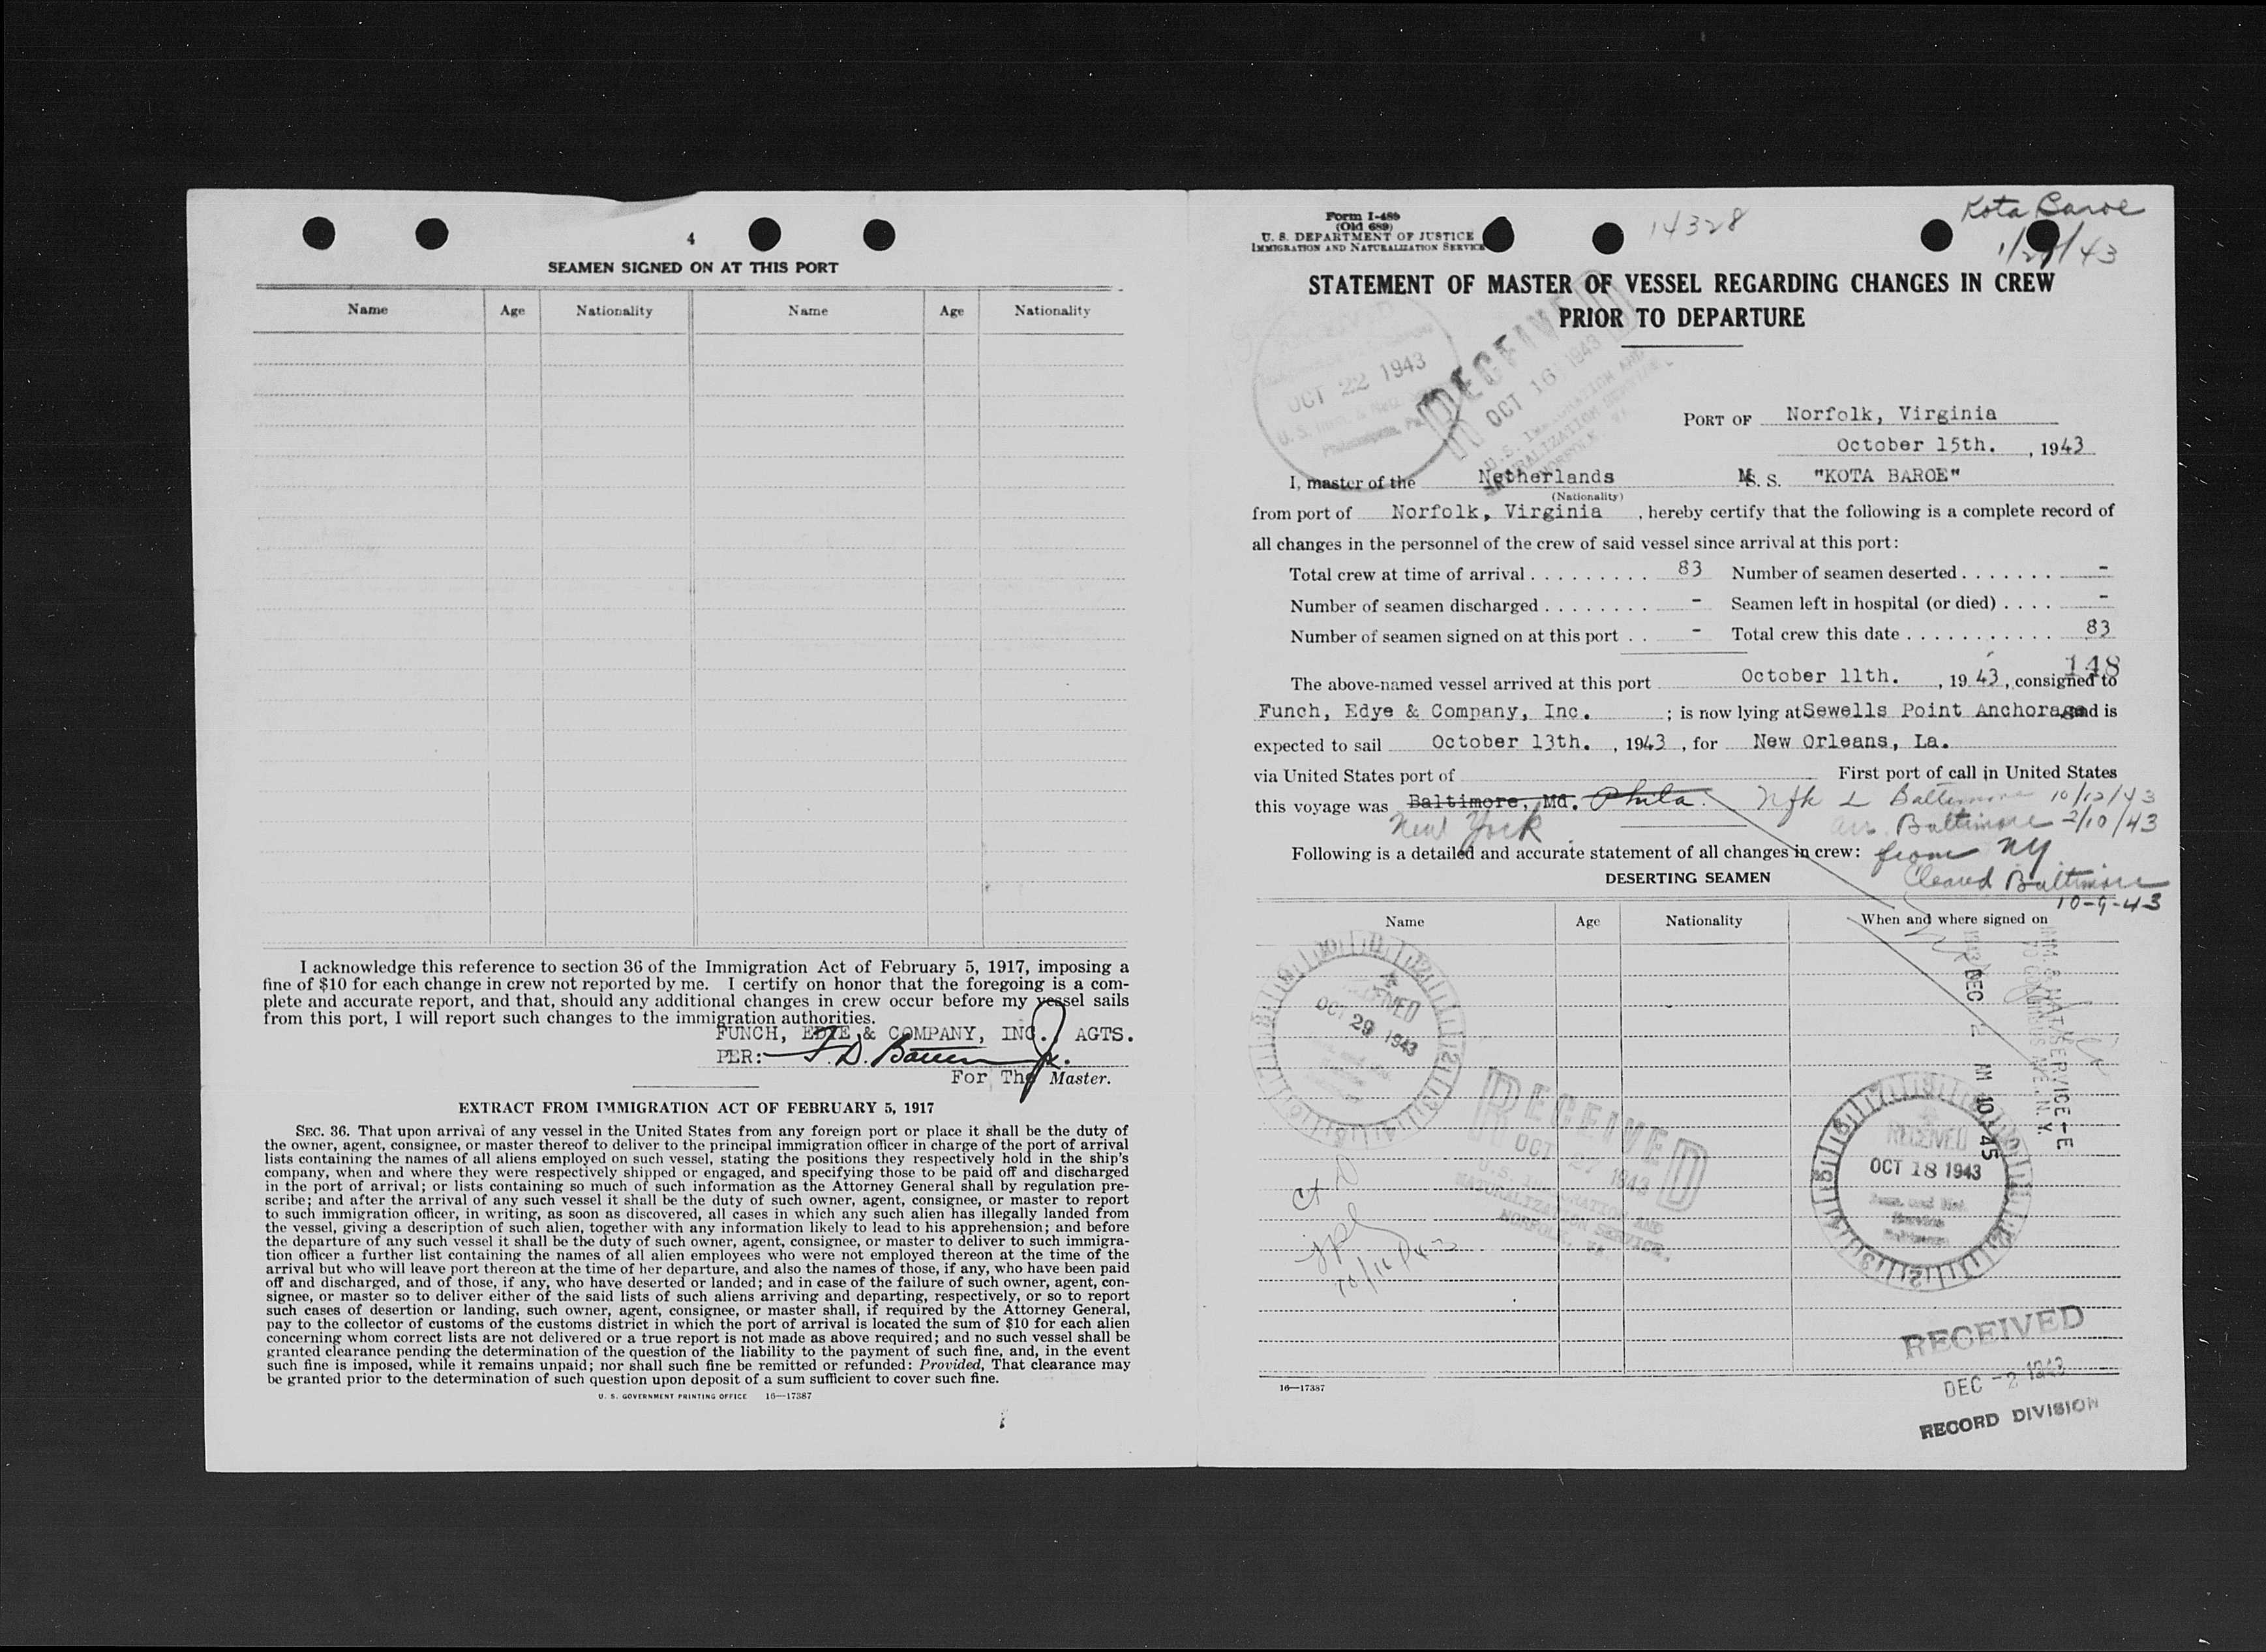 4
SEAMEN SIGNED ON AT THIS PORT
Name Age Nationality Name Age Nationality
I acknowledge this reference to section 36 of the Immigration Act of February 5, 1917, imposing a
fine of $10 for each change in crew not reported by me. I certify on honor that the foregoing is a com-
plete and accurate report, and that, should any additional changes in crew occur before my vessel sails
from this port, I will report such changes to the immigration authorities.
FUNCH, EDYE & COMPANY, INC., AGTS.
PER:
For The Master.
EXTRACT FROM IMMIGRATION ACT OF FEBRUARY 5, 1917
SEC. 36. That upon arrival of any vessel in the United States from any foreign port or place it shall be the duty of
the owner, agent, consignee, or master thereof to deliver to the principal immigration officer in charge of the port of arrival
lists containing the names of all aliens employed on such vessel, stating the positions they respectively hold in the ship's
company, when and where they were respectively shipped or engaged, and specifying those to be paid off and discharged
in the port of arrival; or lists containing so much of such information as the Attorney General shall by regulation pre-
scribe; and after the arrival of any such vessel it shall be the duty of such owner, agent, consignee, or master to report
to such immigration officer, in writing, as soon as discovered, all cases in which any such alien has illegally landed from
the vessel, giving a description of such alien, together with any information likely to lead to his apprehension; and before
the departure of any such vessel it shall be the duty of such owner, agent, consignee, or master to deliver to such immigra-
tion officer a further list containing the names of all alien employees who were not employed thereon at the time of the
arrival but who will leave port thereon at the time of her departure, and also the names of those, if any, who have been paid
off and discharged, and of those, if any, who have deserted or landed; and in case of the failure of such owner, agent, con-
signee, or master so to deliver either of the said lists of such aliens arriving and departing, respectively, or so to report
such cases of desertion or landing, such owner, agent, consignee, or master shall, if required by the Attorney General,
pay to the collector of customs of the customs district in which the port of arrival is located the sum of $10 for each alien
concerning whom correct lists are not delivered or a true report is not made as above required; and no such vessel shall be
granted clearance pending the determination of the question of the liability to the payment of such fine, and, in the event
such fine is imposed, while it remains unpaid; nor shall such fine be remitted or refunded: Provided, That clearance may
be granted prior to the determination of such question upon deposit of a sum sufficient to cover such fine.
U. S. GOVERNMENT PRINTING OFFICE 16—17387
Form I-489
(Old 689)
U. S. DEPARTMENT OF JUSTICE
IMMIGRATION AND NATURALIZATION SERVICE
14328
Kota Baroe
STATEMENT OF MASTER OF VESSEL REGARDING CHANGES IN CREW
PRIOR TO DEPARTURE
OCT 22 1943
RECEIVED
OCT 16 1943
PORT OF Norfolk, Virginia
October 15th. , 1943
I, master of the Netherlands M.S. S. "KOTA BAROE"
(Nationality)
from port of Norfolk, Virginia , hereby certify that the following is a complete record of
all changes in the personnel of the crew of said vessel since arrival at this port:
Total crew at time of arrival 83 Number of seamen deserted -
Number of seamen discharged - Seamen left in hospital (or died) -
Number of seamen signed on at this port - Total crew this date 83
148
The above-named vessel arrived at this port October 11th. , 1943, consigned to
Funch, Edye & Company, Inc. ; is now lying at Sewells Point Anchorage and is
expected to sail October 13th. , 1943, for New Orleans, La.
via United States port of First port of call in United States
this voyage was Baltimore, Md. Phila. Nfk L Baltimore 10/12/43
New York arr. Baltimore 2/10/43
Following is a detailed and accurate statement of all changes in crew: from NY
Cleared Baltimore
10-9-43
DESERTING SEAMEN
Name Age Nationality When and where signed on
RECEIVED
OCT 29 1943
1943 DEC 2 AM 10 45
IMM. & NAT. SERVICE
RECEIVED
OCT 27 1943
U.S. IMMIGRATION AND
NATURALIZATION SERVICE,
NORFOLK, VA.
RECEIVED
OCT 18 1943
RECEIVED
DEC -2 1943
RECORD DIVISION
16—17387